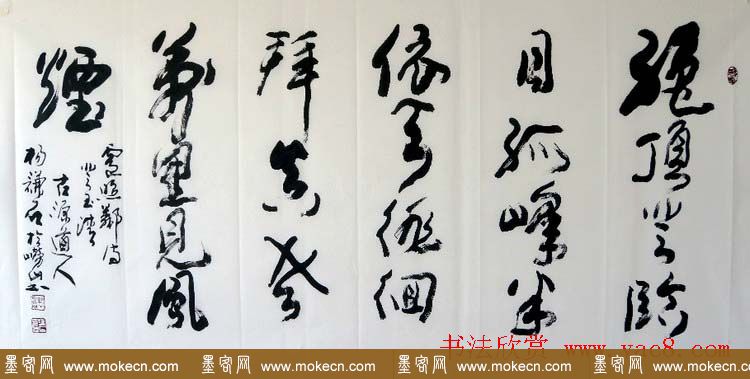 絕頂登臨
目孤峰半
倚天徘徊
拜真老
萬里見風
煙
盧照鄰詩
登玉清
古源道人
楊謙石於嶗山書
书法欣赏 www.yac8.com
墨客网 www.mokecn.com 墨客网 www.mokecn.com 墨客网 www.mokecn.com 墨客网 www.mokecn.com